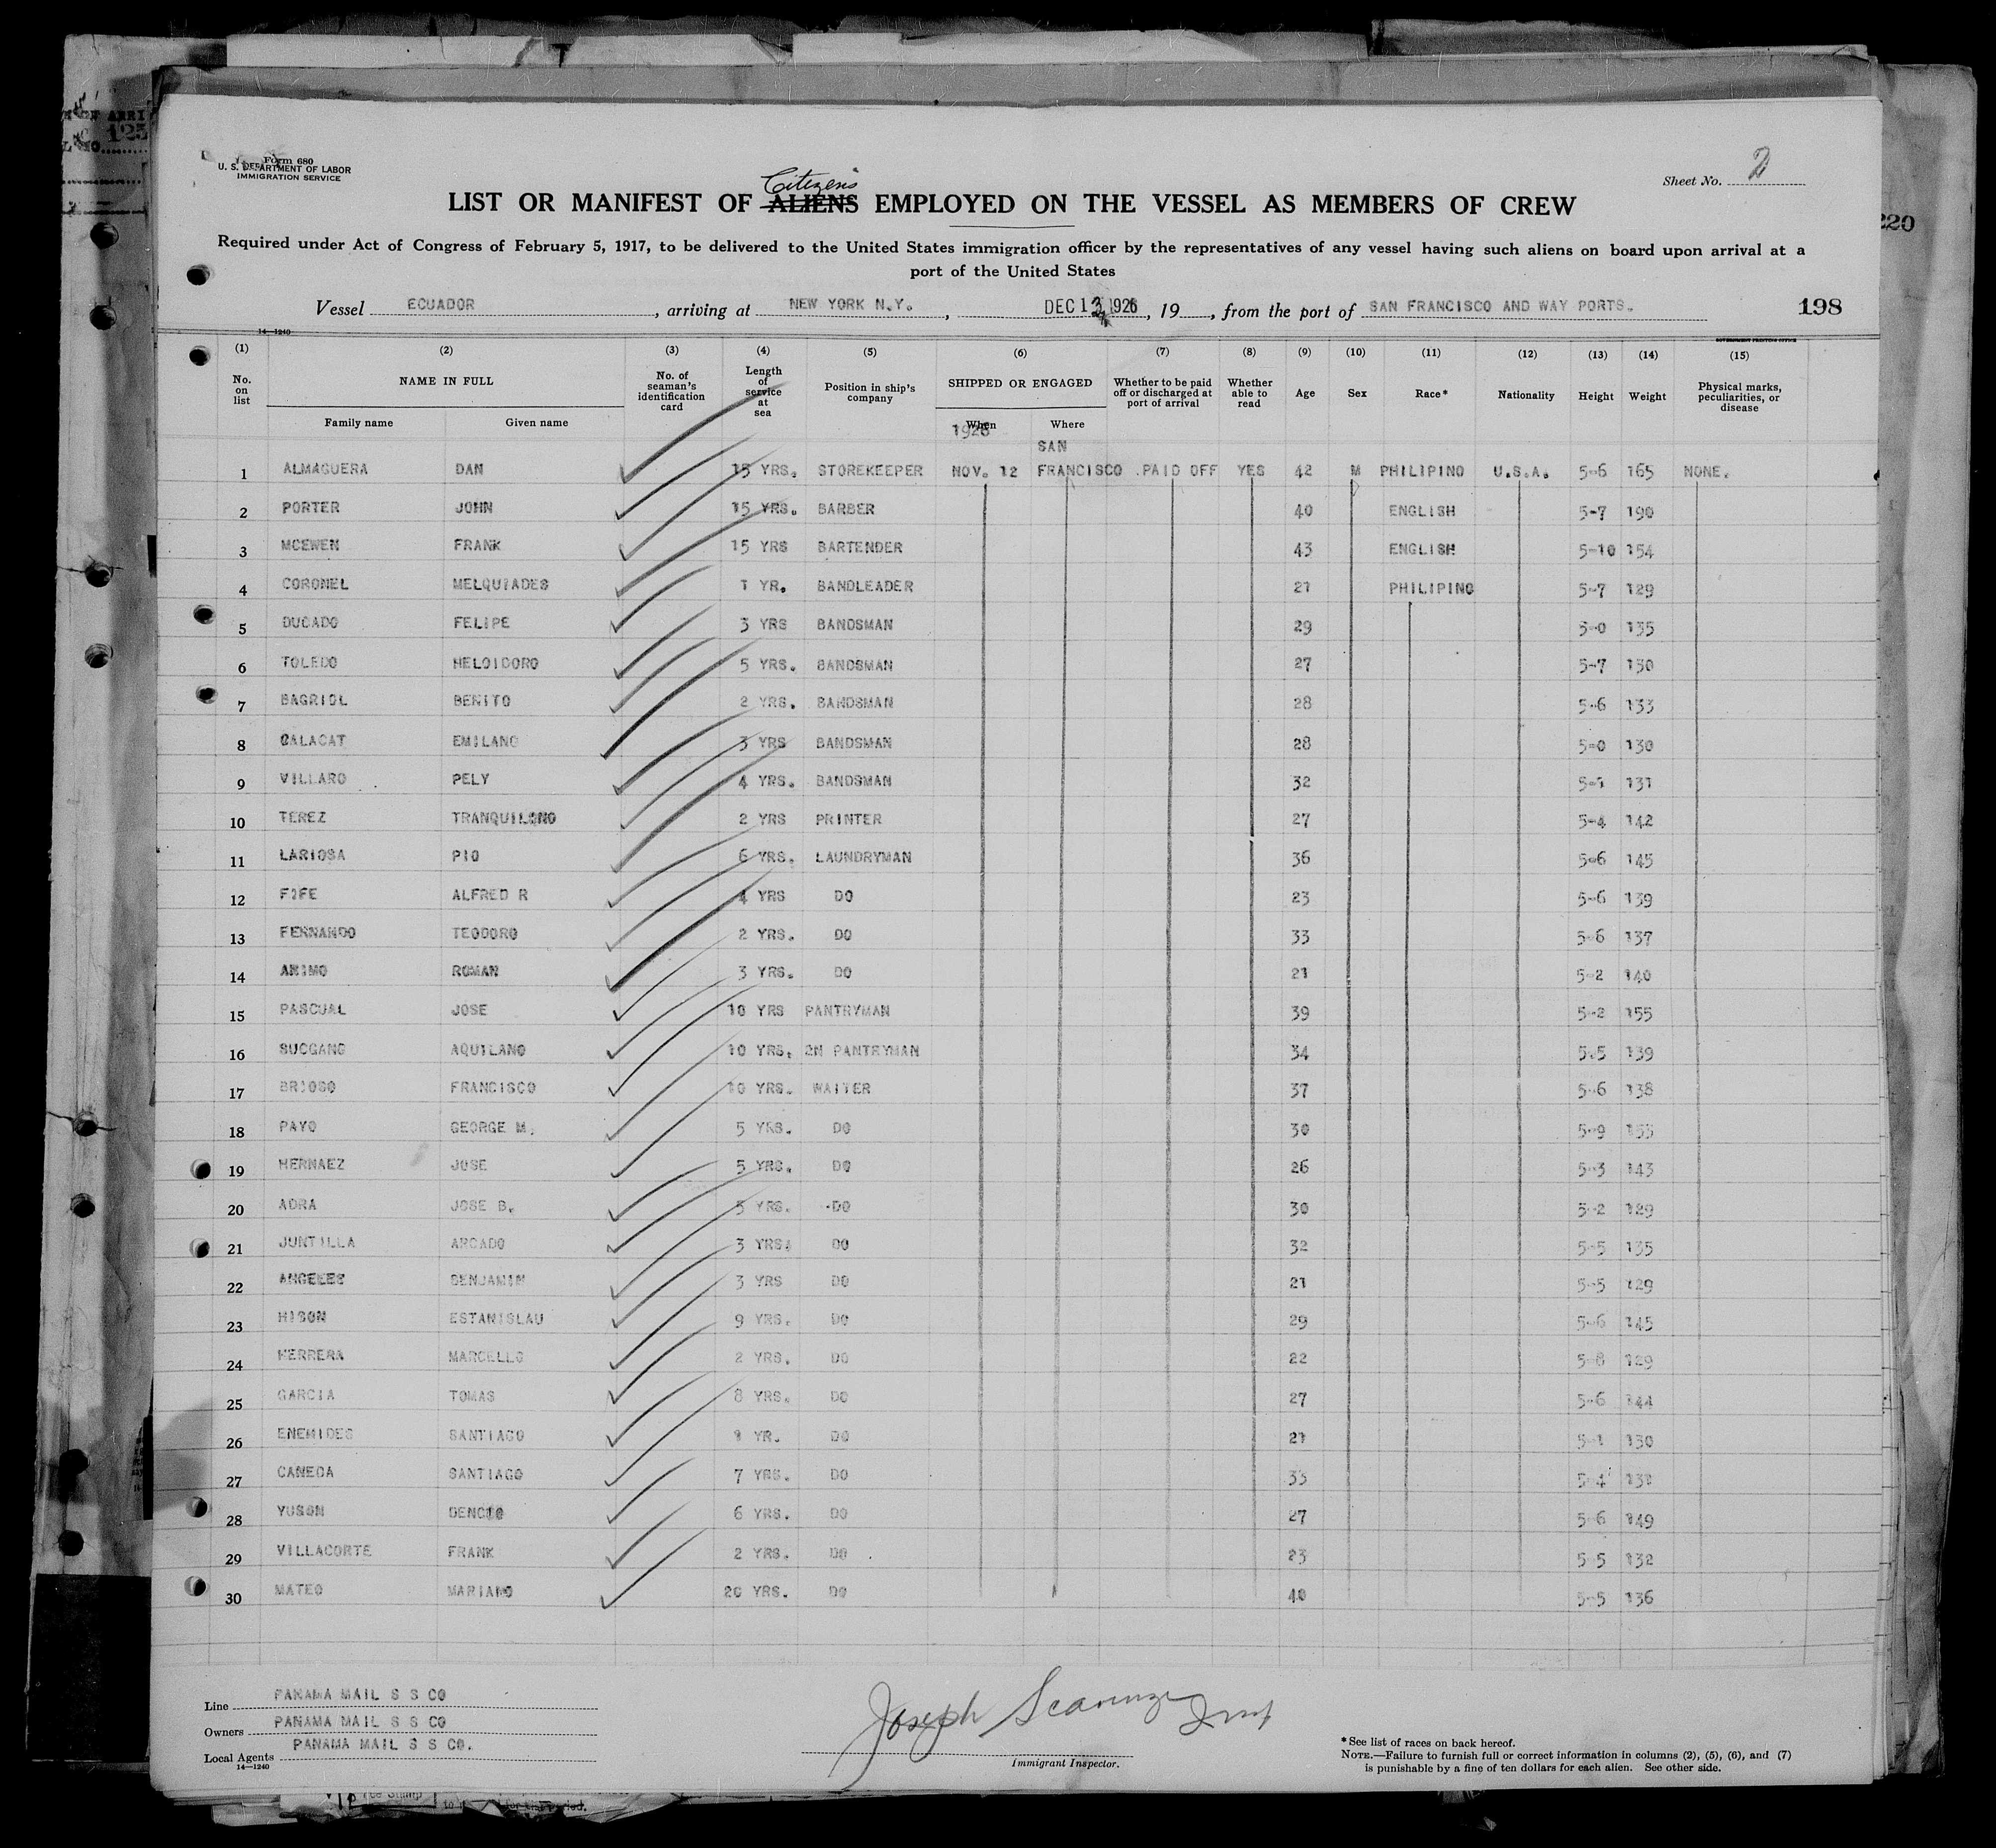 Form 680
U. S. DEPARTMENT OF LABOR
IMMIGRATION SERVICE
Sheet No. 2
Citizens
LIST OR MANIFEST OF ALIENS EMPLOYED ON THE VESSEL AS MEMBERS OF CREW
Required under Act of Congress of February 5, 1917, to be delivered to the United States immigration officer by the representatives of any vessel having such aliens on board upon arrival at a
port of the United States
220
Vessel ECUADOR, arriving at NEW YORK N.Y., DEC 1 1926, 19, from the port of SAN FRANCISCO AND WAY PORTS. 198
14—1240
(1) (2) (3) (4) (5) (6) (7) (8) (9) (10) (11) (12) (13) (14) (15)
No. on list NAME IN FULL No. of seaman's identification card Length of service at sea Position in ship's company SHIPPED OR ENGAGED Whether to be paid off or discharged at port of arrival Whether able to read Age Sex Race* Nationality Height Weight Physical marks, peculiarities, or disease
Family name Given name When Where
1926 SAN
1 ALMAGUERA DAN 15 YRS. STOREKEEPER NOV. 12 FRANCISCO PAID OFF YES 42 M PHILIPINO U.S.A. 5-6 165 NONE.
2 PORTER JOHN 15 YRS. BARBER 40 ENGLISH 5-7 190
3 MCEWEN FRANK 15 YRS BARTENDER 43 ENGLISH 5-10 154
4 CORONEL MELQUIADES 1 YR. BANDLEADER 21 PHILIPINO 5-7 129
5 DUCADO FELIPE 3 YRS BANDSMAN 29 5-0 135
6 TOLEDO HELOIDORO 5 YRS. BANDSMAN 27 5-7 130
7 BAGRIOL BENITO 2 YRS. BANDSMAN 28 5-6 133
8 CALACAT EMILANO 3 YRS BANDSMAN 28 5-0 130
9 VILLARO PELY 4 YRS. BANDSMAN 32 5-1 131
10 TEREZ TRANQUILONO 2 YRS PRINTER 27 5-4 142
11 LARIOSA PIO 6 YRS. LAUNDRYMAN 36 5-6 145
12 FIFE ALFRED R 4 YRS DO 23 5-6 139
13 FERNANDO TEODORO 2 YRS. DO 33 5-6 137
14 ANIMO ROMAN 3 YRS. DO 21 5-2 140
15 PASCUAL JOSE 10 YRS PANTRYMAN 39 5-2 155
16 SUCGANG AQUILANO 10 YRS. 2N PANTRYMAN 34 5-5 139
17 BRIOSO FRANCISCO 10 YRS. WAITER 37 5-6 138
18 PAYO GEORGE M. 5 YRS. DO 30 5-9
19 HERNAEZ JOSE 5 YRS. DO 26 5-3 143
20 ADRA JOSE B. 5 YRS. DO 30 5-2 129
21 JUNTILLA ARCADO 3 YRS. DO 32 5-5 135
22 ANGELES BENJAMIN 3 YRS DO 21 5-5 129
23 HISON ESTANISLAU 9 YRS. DO 29 5-6 145
24 HERRERA MARCELLO 2 YRS. DO 22 5-8 129
25 GARCIA TOMAS 8 YRS. DO 27 5-6 144
26 ENEMIDES SANTIAGO 1 YR. DO 21 5-1 130
27 CANEDA SANTIAGO 7 YRS. DO 33 5-4
28 YUSON 6 YRS. DO 27 5-6 149
29 VILLACORTE FRANK 2 YRS. DO 23 5-5 132
30 MATEO MARIANO 20 YRS. DO 40 5-5 136
Line PANAMA MAIL S S CO
Owners PANAMA MAIL S S CO
Local Agents PANAMA MAIL S S CO.
14—1240
Joseph
Immigrant Inspector.
*See list of races on back hereof.
NOTE.—Failure to furnish full or correct information in columns (2), (5), (6), and (7)
is punishable by a fine of ten dollars for each alien. See other side.